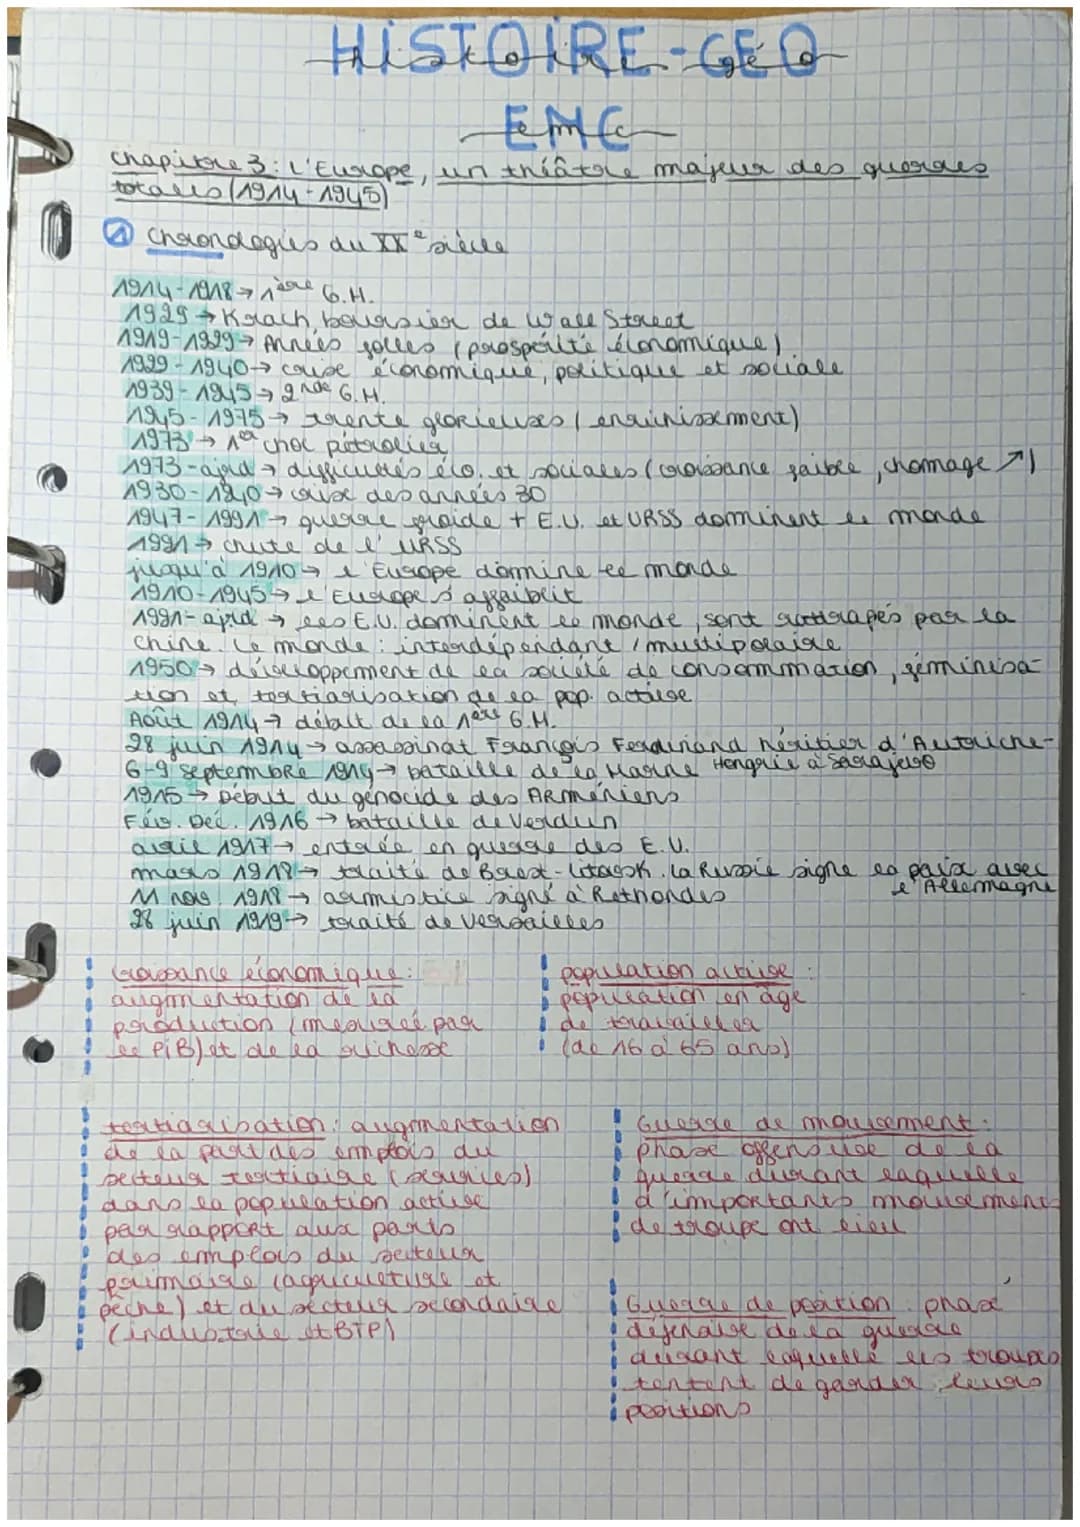 HISTOIRE-GÉO
Histoire-géo
EMC
emc
Chapitre 3 : L'Europe, un théâtre majeur des guerres
totales (1914-1945)
1 Chronologies du XXe siècle
1914-1918 → 1ère G.M.
1929 → Krach boursier de Wall Street
1919-1929 → Années folles (prospérité économique)
1929-1940 → crise économique, politique et sociale
1939-1945 → 2nde G.M.
1945-1975 → trente glorieuses (enrichissement)
1973 → 1er choc pétrolier
1973-ajrd → difficultés éco. et sociales (croissance faible, chomage ↗)
1930-1940 → crise des années 30
1947-1991 → guerre froide + E.U. et URSS dominent le monde
1991 → chute de l'URSS
jusqu'à 1910 → l'Europe domine le monde
1910-1945 → l'Europe s'affaiblit
1991-ajrd → les E.U. dominent le monde, sont rattrapés par la
Chine. Le monde : interdépendant / multipolaire
1950 → développement de la société de consommation, féminisa-
tion et tertiarisation de la pop. active
Août 1914 → début de la 1ère G.M.
28 juin 1914 → assassinat François Ferdinand héritier d'Autriche-
Hongrie à Sarajevo
6-9 septembre 1914 → bataille de la Marne
1915 → Début du génocide des Arméniens
Fév. Déc. 1916 → bataille de Verdun
avril 1917 → entrée en guerre des E.U.
mars 1918 → traité de Brest-Litovsk. La Russie signe la paix avec
l'Allemagne
11 nov. 1918 → armistice signé à Rethondes
28 juin 1919 → traité de Versailles
Croissance économique :
augmentation de la
production (mesurée par
le PIB) et de la richesse
population active :
population en âge
de travailler
(de 16 à 65 ans)
tertiarisation : augmentation
de la part des emplois du
secteur tertiaire (services)
dans la population active
par rapport aux parts
des emplois du secteur
primaire (agriculture et
pêche) et du secteur secondaire
(industrie et BTP)
Guerre de mouvement :
phase offensive de la
guerre durant laquelle
d'importants mouvements
de troupe ont lieu
Guerre de position : phase
défensive de la guerre
durant laquelle les troupes
tentent de garder leurs
positions